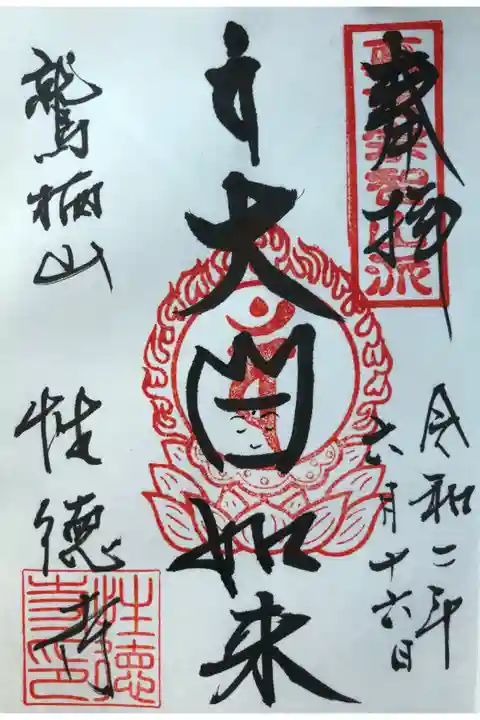 奉拝
真言宗智山派
令和二年
六月十六日
大日如来
鷲栖山
性徳寺
性徳寺印